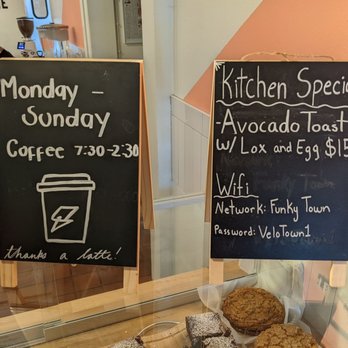 Monday -
Sunday
Coffee 7:30-2:30
thanks a latte!
Kitchen Specia
-Avocado Toast
w/ Lox and Egg $15
Wifi
Network: Funky Town
Password: VeloTown1